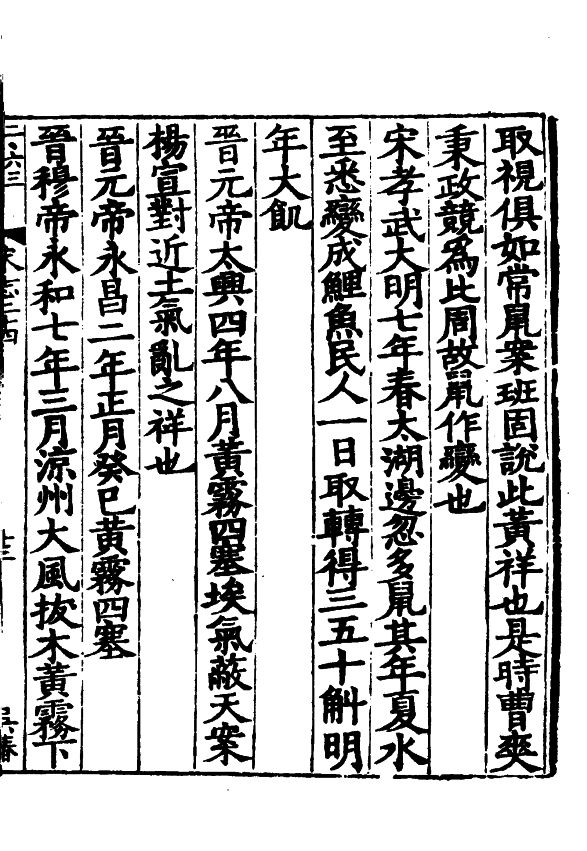 取視俱如常鼠案班固說此黃祥也是時曹爽
秉政競為比周故鼠作變也
宋孝武大明七年春太湖邊忽多鼠其年夏水
至悉變成鯉魚民人一日取轉得三五十斛明
年大飢
晉元帝太興四年八月黃霧四塞埃氣蔽天案
楊宣對近土氣亂之祥也
晉元帝永昌二年正月癸巳黃霧四塞
晉穆帝永和七年三月涼州大風拔木黃霧下